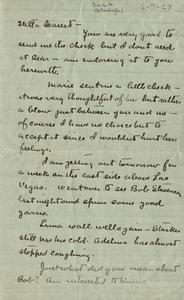 6-7-23
Stella Dearest -
You are very good to
send me the check but I dont need
it Dear - am endorsing it to you
herewith.
Marie sent me a little check -
it was very thoughtful of him but rather
a blow just between you and me -
of course I have no choice but to
accept it since I wouldn't hurt her
feelings.
I am getting out tomorrow for
a week on the east side above Las
Vegas. Went over to see Bob
last night and spun some good
yarns.
Lima well again - Blanket
still has his cold - Adelma has almost
stopped coughing.
Just what did you mean about
Bob? Am interested to know